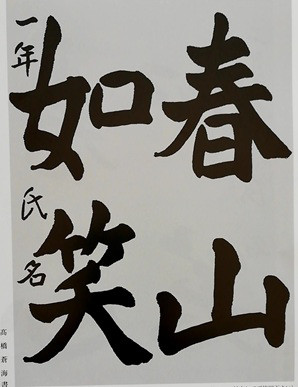 春山
如笑
一年 氏名
高橋蒼海書